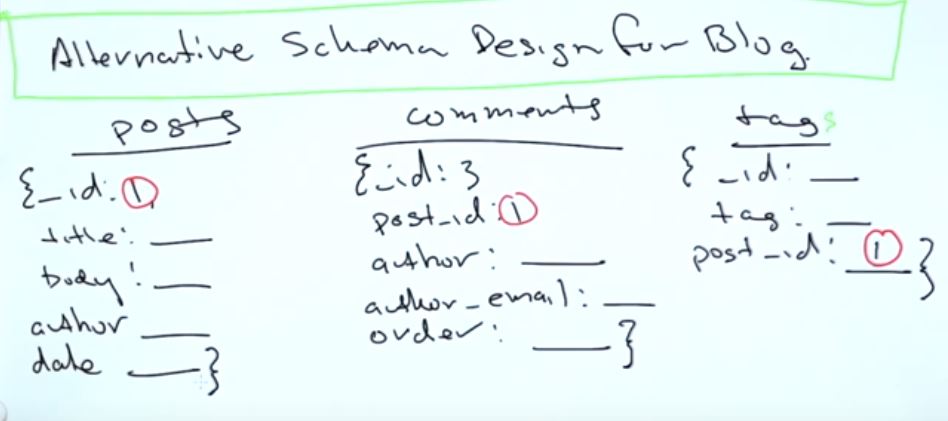 Alternative Schema Design for Blog.
posts
{_id: 1,
title: ___
body: ___
author ___
date ___}
comments
{_id: 3
post_id: 1
author: ___
author_email: ___
order: ___}
tags
{ _id: ___
tag: ___
post_id: 1}